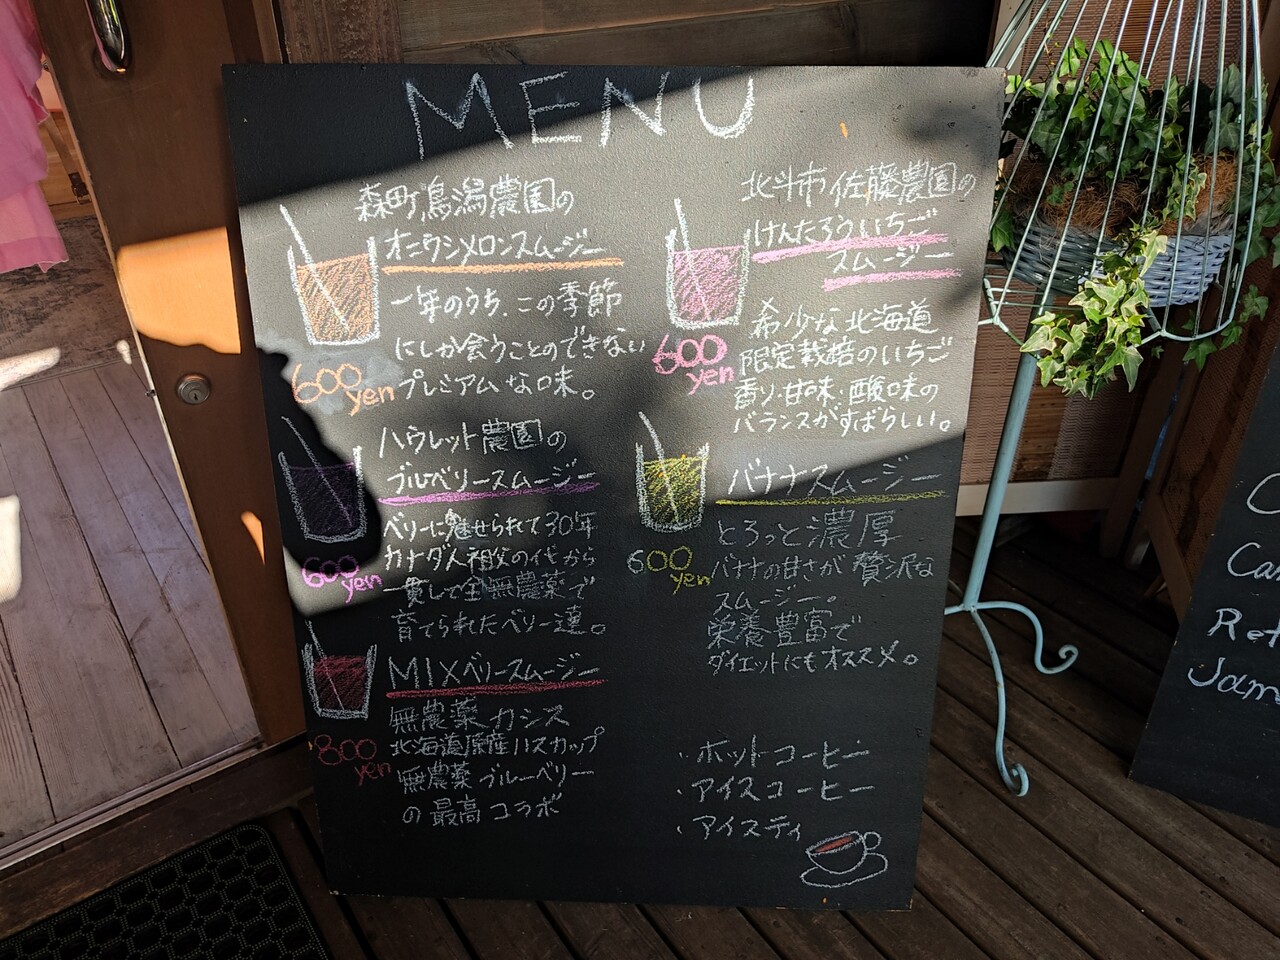 MENU
森町鳥潟農園の
オニウシメロンスムージー
一年のうち、この季節
にしか会うことのできない
プレミアムな味。
600
yen
北斗市佐藤農園の
けんたろういちご
スムージー
希少な北海道
限定栽培のいちご
香り・甘味・酸味の
バランスがすばらしい。
600
yen
ハウレット農園の
ブルーベリースムージー
ベリーに魅せられて30年
カナダ人祖父の代から
一貫して全無農薬で
育てられたベリー達。
600
yen
バナナスムージー
とろっと濃厚
バナナの甘さが贅沢な
スムージー。
栄養豊富で
ダイエットにもオススメ。
600
yen
MIXベリースムージー
無農薬カシス
北海道原産ハスカップ
無農薬ブルーベリー
の最高コラボ
800
yen
・ホットコーヒー
・アイスコーヒー
・アイスティ